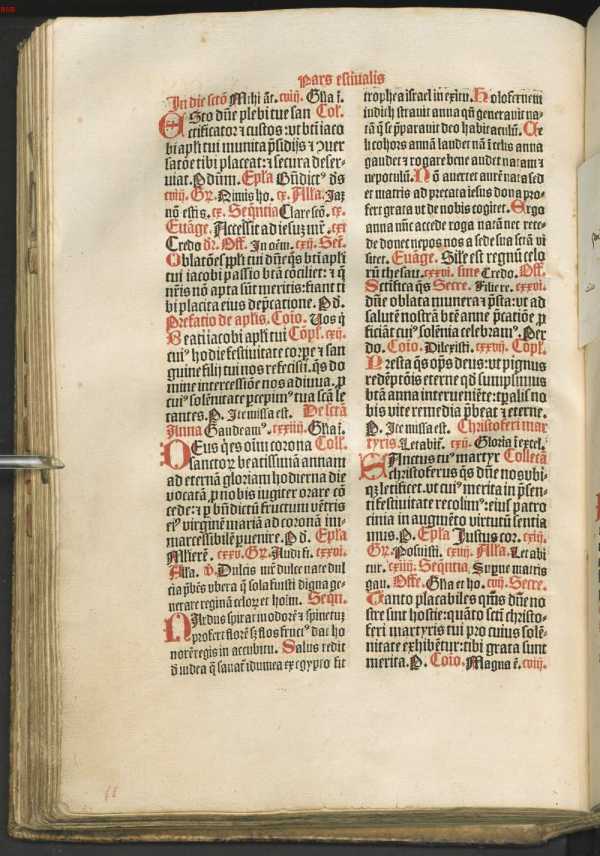 Pars estiualis
In die sctō Mihi āt. cviij. Gła ī.
Esto dn̄e plebi tue san Col͛.
ctificator ⁊ custos: vt bt̄i iaco
bi apłi tui munita p̄sidijs ⁊ ꝯuer
satōe tibi placeat: ⁊ secura deser-
uiat. P. dūm. Epła Bn̄dict᷒ d̄s
cviij. Gr̄. Nimis ho. cx. Ałła. Jaz
nō estis. cx. Seq̄ntia Clare scō. cx.
Euāge. Accessit ad iesuz mr̄. cxi
Credo dr̄. Off. In oēm. cxij. Sec̄.
Oblatōes ppłi tui dn̄e q̄s bt̄i apłi
tui iacobi passio btā cōciliet: ⁊ q̄
nr̄is nō apta sūt meritis: fiant ti
bi placita eius dep̄catione. P. d.
Prefatio de aplis. Coīo. Uos q̄
Beati iacobi apłi tui Cōpł. cxij.
cui᷒ hodie festiuitate corpe ⁊ san
guine filij tui nos refecisti. q̄s do
mine intercessiōe nos adiuua. ꝓ
cui᷒ solēnitate ꝑcepim᷒ tua scā le
tantes. P. Ite missa est. De sctā
Anna Gaudeam᷒. cxxiiij. Gła ī.
Deus q̄ es oīm corona Col͛.
sanctoꝝ beatissimā annam
ad eternā gloriam hodierna die
vocatā ꝓ nobis iugiter orare cō
cede: ⁊ ꝑ bn̄dictū fructum vētris
ei᷒ virginē mariā ad coronā im
marcessibilē puenire. P. d. Epła
Mlierē. cxxv. Gr̄. Audi fi. cxxvi.
Ałła. v̄. Dulcis mr̄ dulce nate dul
cia p̄bēs vbera q̄ sola fuisti digna ge-
nerare reginā celoꝝ et hoīm. Seqn̄.
Nardus spirat in odorē ⁊ spinetuz
profert florē ⁊ flos fruct᷒ dat ho
norē regis in accubitu. Salus redit
d̄ iudea q̄ sanat idumea ex egypto fit
trophea israel in exitu. Holofernem
iudich strauit anna qn̄ generauit na-
tā q̄ se p̄parauit deo habitaculū. Ce
li cohors annā laudet nā ī celis anna
gaudet ⁊ rogare bene audet natam ⁊
nepotulū. Nō auertet aurē nata sed
et matris ad precata iesus dona pro-
fert grata vt de nobis cogitet. Ergo
anna mr̄ accede roga natā nec rece-
de donec nepos nos a sede sua scrā vi
sitet. Euāge. Siłe est regnū celo
rū thesau. cxxvi. sine Credo. Off.
Sctifica q̄s Secre. Filie re. cxxvi.
dn̄e oblata munera ⁊ p̄sta: vt ad
salutē nostrā btē anne p̄catiōe ꝓ
ficiāt cui᷒ solēnia celebram᷒. Per
do. Coīo. Dilexisti. cxxvij. Cōpł.
Presta q̄s op̄s deus: vt pignus
redēptōis eterne qd̄ sumpsimus
btā anna interueniēte: tpalis no
bis vite remedia p̄beat ⁊ eterne.
P. Ite missa est. Christoferi mar
tyris. Letabit̄. cxij. Gloria ī excel.
Sanctus tu᷒ martyr Collectā
christoferus q̄s dn̄e nos vbi-
qꝫ letificet. vt cui᷒ merita in p̄sen
ti festiuitate recolim᷒: ei᷒ patro
cinia in augmēto virtutū sentia
mus. P. Epła Justus cor. cxiij.
Gr̄. Posuisti. cxiij. Ałła. Letabi
tur. cxiiij. Seq̄ntia, Surne matris
gau. Offē. Gła et ho. cvij. Secre.
Tanto placabiles qm̄s dn̄e no
stre sint hostie: quāto sctī christo-
feri martyris tui pro cuius solē-
nitate exhibētur: tibi grata sunt
merita. P. Coīo. Magna ē. cviij.